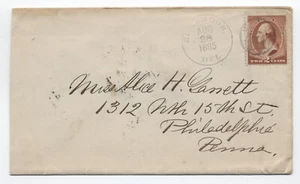 1885
DEL.
TWO 2 CENTS
Miss Alice H. Garrett
1312 Nth 15th St.
Philadelphia
Penna.